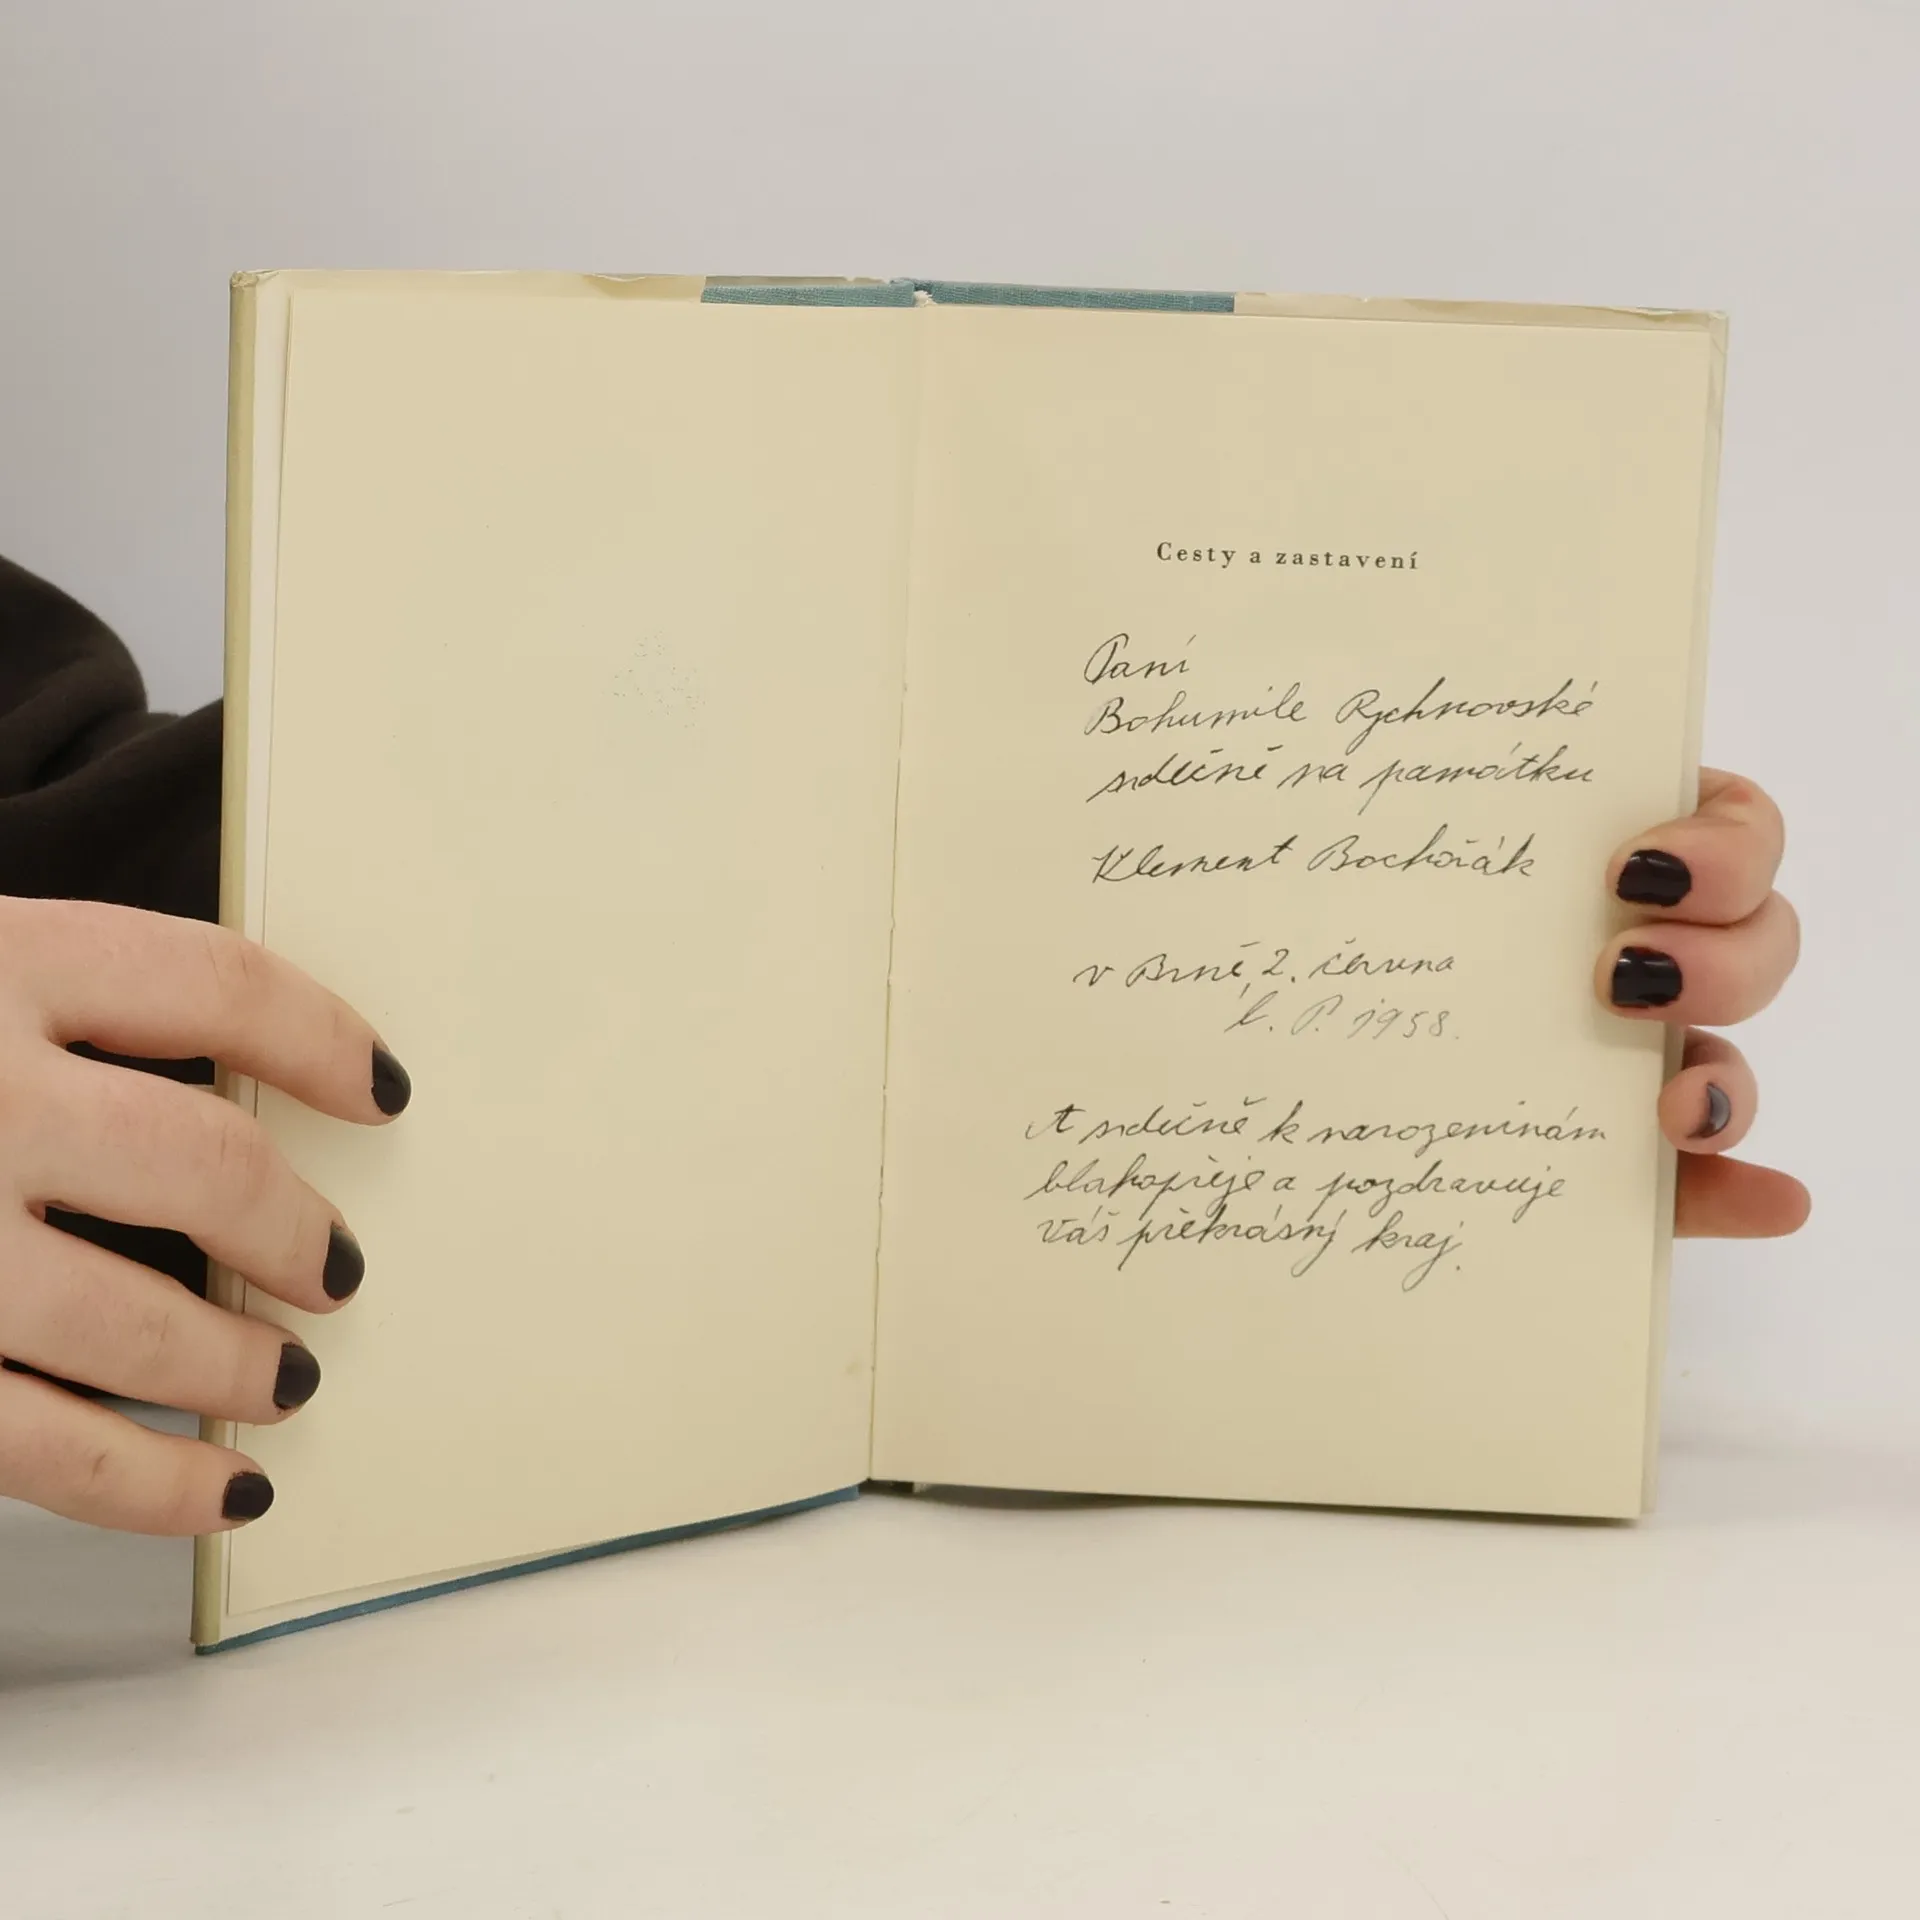 Cesty a zastavení
Paní
Bohumile Rychnovské
srdečně na památku
Klement Bochořák
v Brně, 2. června
l. P. 1958.
A srdečně k narozeninám
blahopřeje a pozdravuje
Váš překrásný kraj.